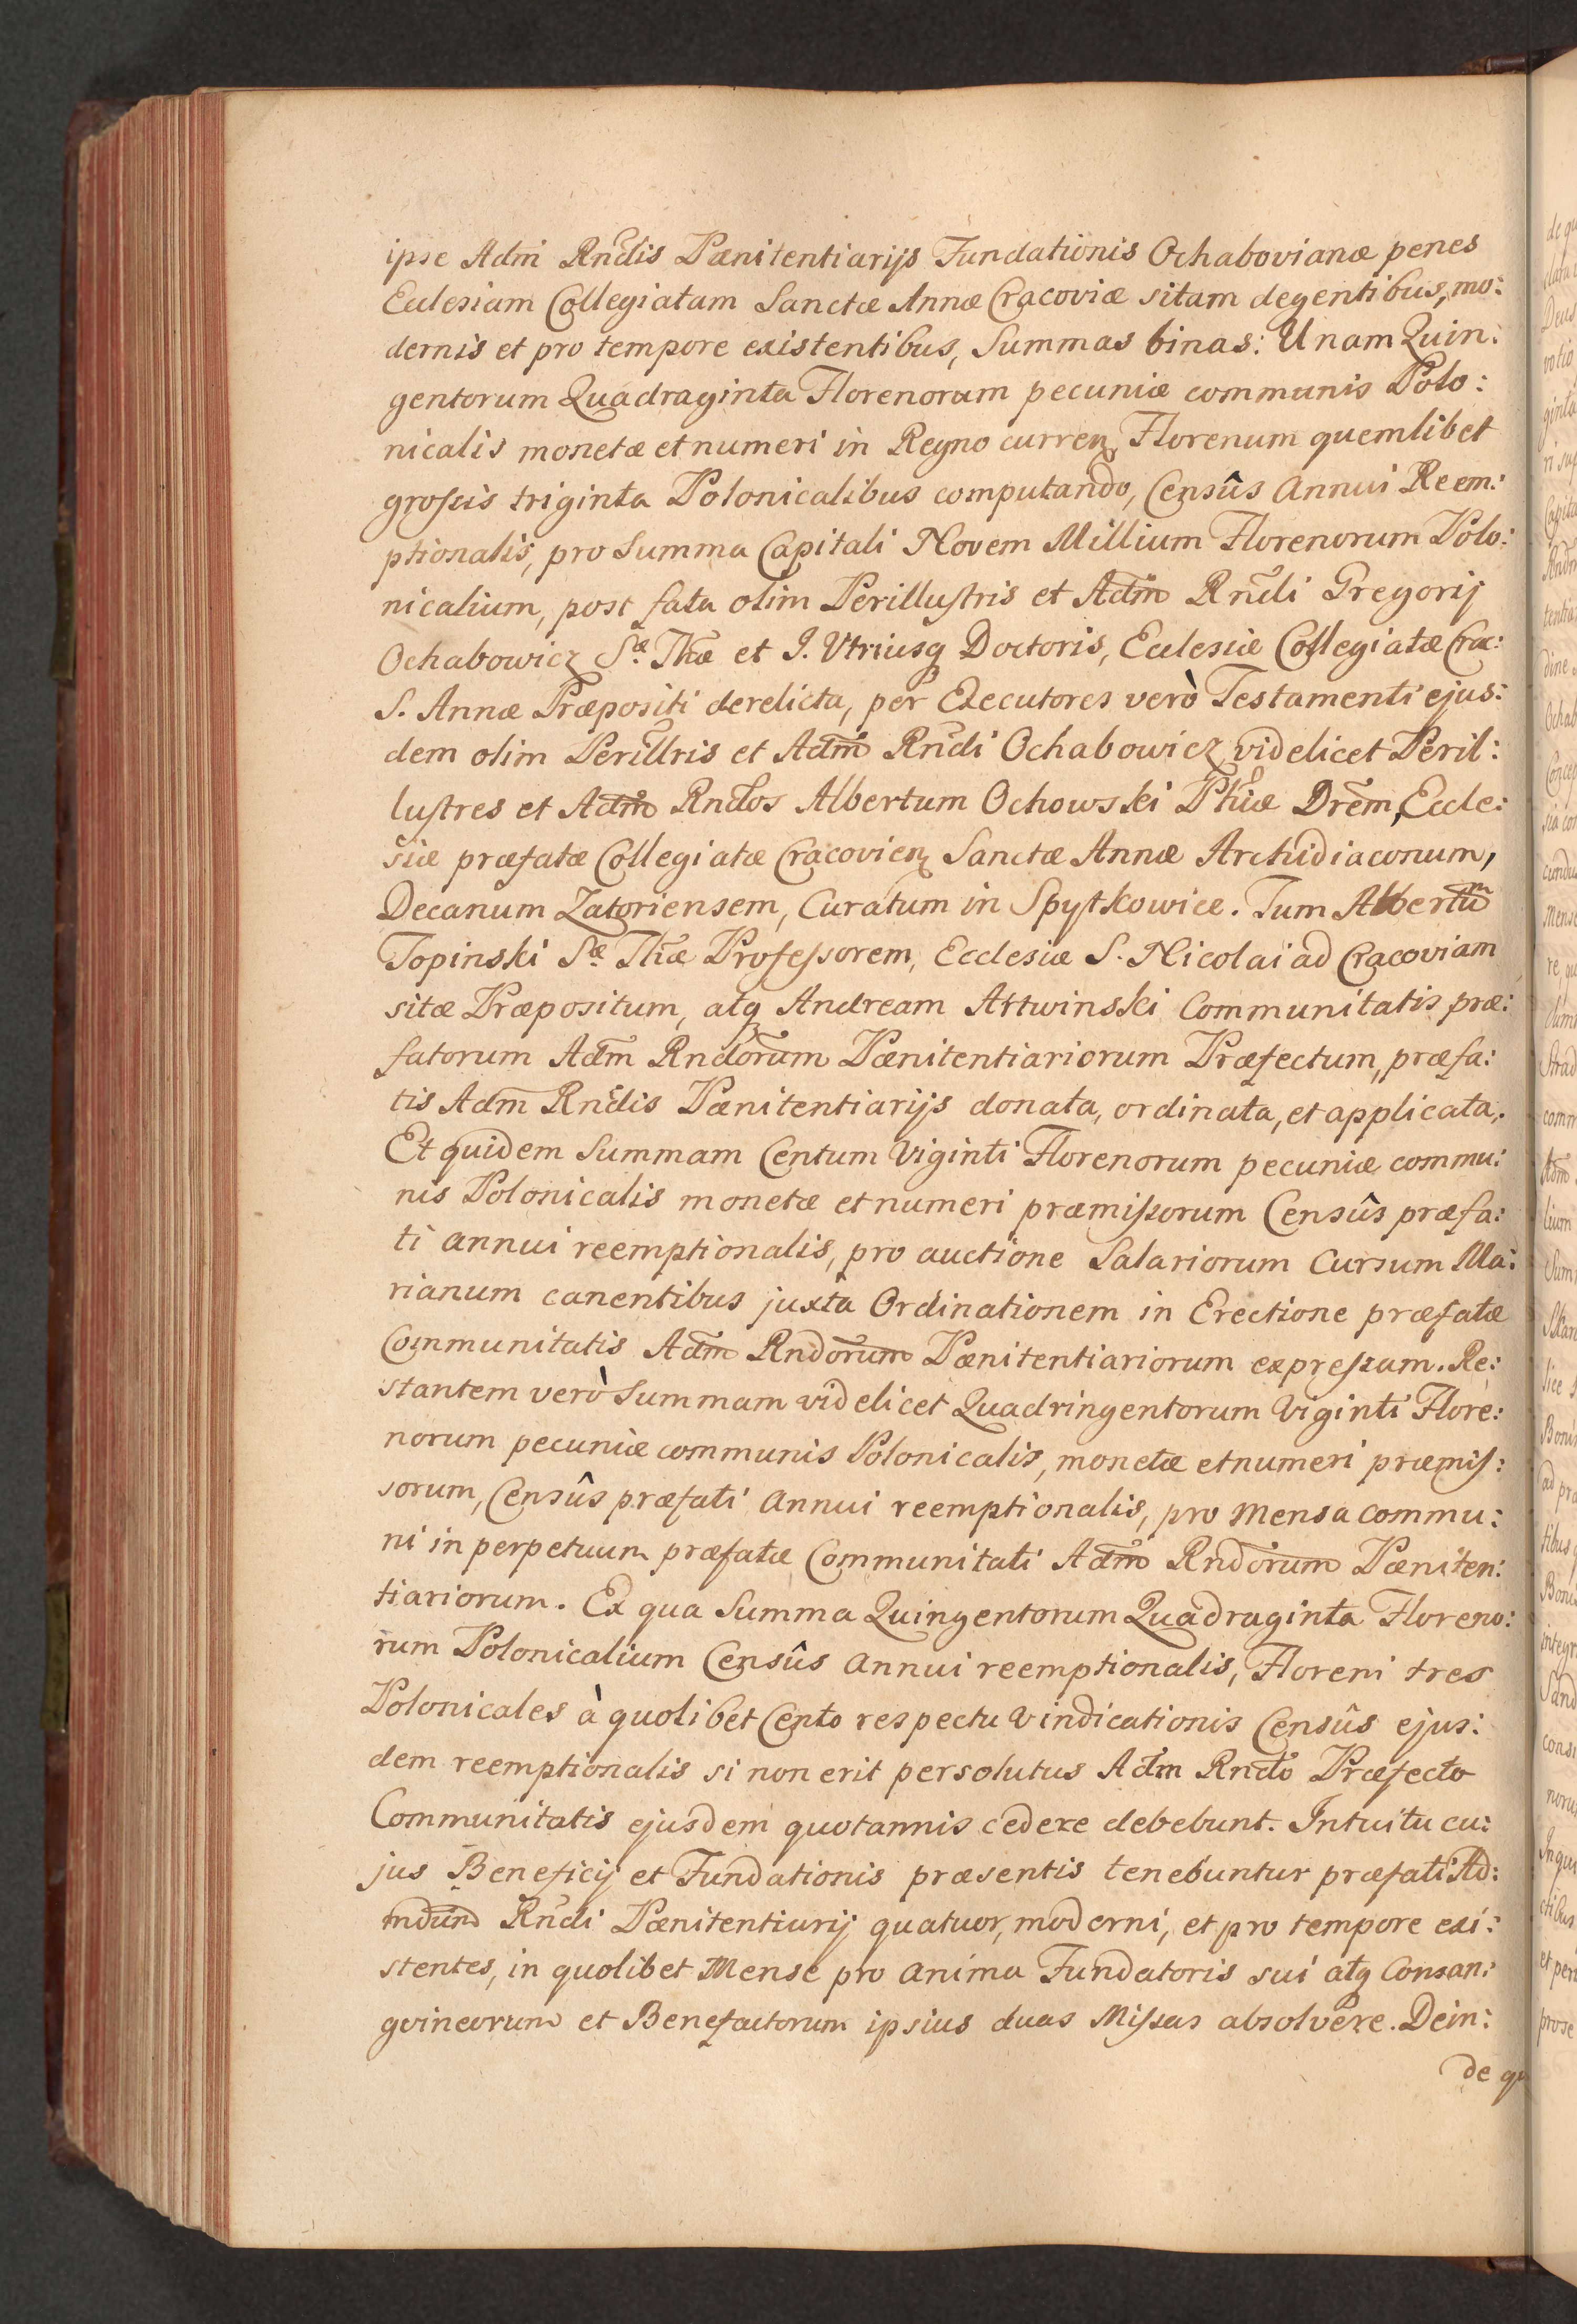 ipse Adm̃ Rñdis Pænitentiarijs Fundationis Ochabovianæ penes
Ecclesiam Collegiatam Sanctæ Annæ Cracoviæ sitam degentibus, mo:
dernis et pro tempore existentibus, Summas binas: Unam Quin:
gentorum Quadraginta Florenorum pecuniæ communis Polo:
nicalis monetæ et numeri in Regno curren, Florenum quemlibet
grossis triginta Polonicalibus computando, Censûs Annui Reem:
ptionalis, pro Summa Capitali Novem Millium Florenorum Polo:
nicalium, post fata olim Perillustris et Adm̃ Rñdi Gregorij
Ochabowicz Sæ Thæ et J. Vtriusq Doctoris, Ecclesiæ Collegiatæ Crac:
S. Annæ Præpositi derelicta, per Executores verò Testamenti ejus:
dem olim Perillris et Adm̃ Rñdi Ochabowicz videlicet Peril:
lustres et Adm̃ Rndos Albertum Ochowski Phiæ Drẽm, Eccle:
siæ præfatæ Collegiatæ Cracovien Sanctæ Annæ Archidiaconum,
Decanum Zatoriensem, Curatum in Spytkowice. Tum Albertũm
Topinski Sæ Thæ Professorem, Ecclesiæ S. Nicolai ad Cracoviam
sitæ Præpositum, atq Andream Artwinski Communitatis præ:
fatorum Adm̃ Rndorum Pænitentiariorum Præfectum, præfa:
tis Adm̃ Rñdis Pænitentiarijs donata, ordinata, et applicata,.
Et quidem Summam Centum Viginti Florenorum pecuniæ commu:
nis Polonicalis monetæ et numeri præmissorum Censûs præfa:
ti annui reemptionalis, pro auctione Salariorum Cursum Ma:
rianum canentibus juxta Ordinationem in Erectione præfatæ
Communitatis Adm̃ Rndorum Pænitentiariorum expressam. Re:
stantem verò Summam videlicet Quadringentorum Viginti Flore:
norum pecuniæ communis Polonicalis, monetæ et numeri præmis:
sorum, Censûs præfati Annui reemptionalis, pro Mensa commu:
ni in perpetuum præfatæ Communitati Adm̃ Rndorum Pæniten:
tiariorum. Ex qua Summa Quingentorum Quadraginta Floreno:
rum Polonicalium Censûs Annui reemptionalis, Floreni tres
Polonicales à quolibet Cento respectu Vindicationis Censûs ejus:
dem reemptionalis si non erit persolutus Adm Rndo Præfecto
Communitatis ejusdem quotannis cedere debebunt. Intuitu cu:
jus Beneficij et Fundationis præsentis tenebuntur præfati Ad:
mdũm Rñdi Pænitentiarij quatuor, moderni, et pro tempore exi:
stentes, in quolibet Mense pro Anima Fundatoris sui atq Consan:
gvineorum et Benefactorum ipsius duas Missas absolvere. Dein:
de